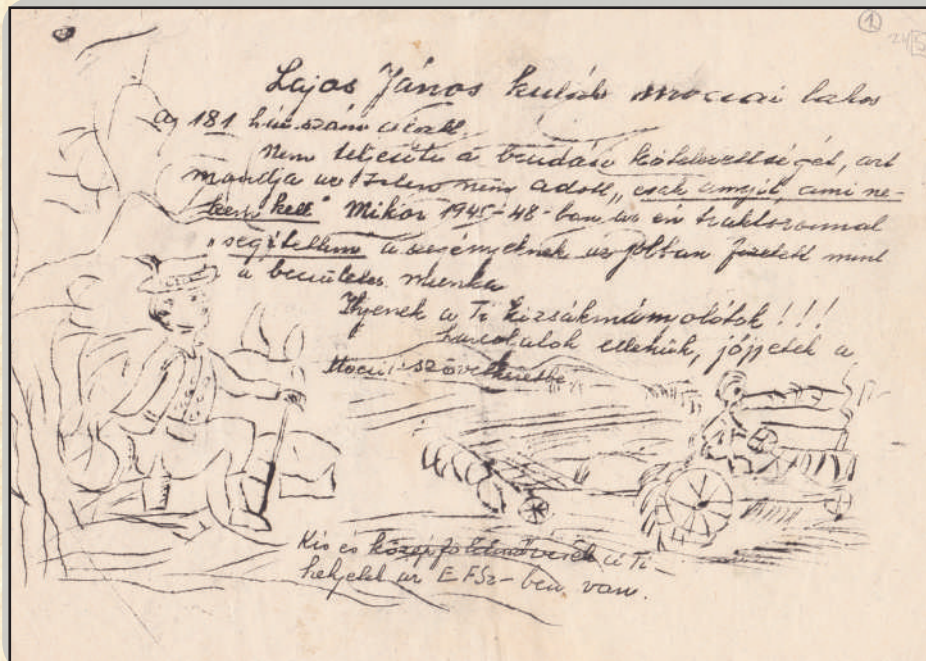 1
24 5
Lajos János kulák mocsai lakos
Az 181 h.sz. szám alatt.
Nem teljesíti a beadási kötelezettségét, azt
mondja az Isten nem adott „csak annyit, ami ne-
kem kell" Mikor 1945-48-ban az én traktorommal
„segítettem" a szegényeknek az jobban fizetett mint
a becsületes munka
Ilyenek a Ti kizsákmányolóitok!!!
harcoljatok ellenük, jöjjetek a
szövetkezetbe
Kis és középföldművesek a Ti
helyetek az EFSz-ben van.